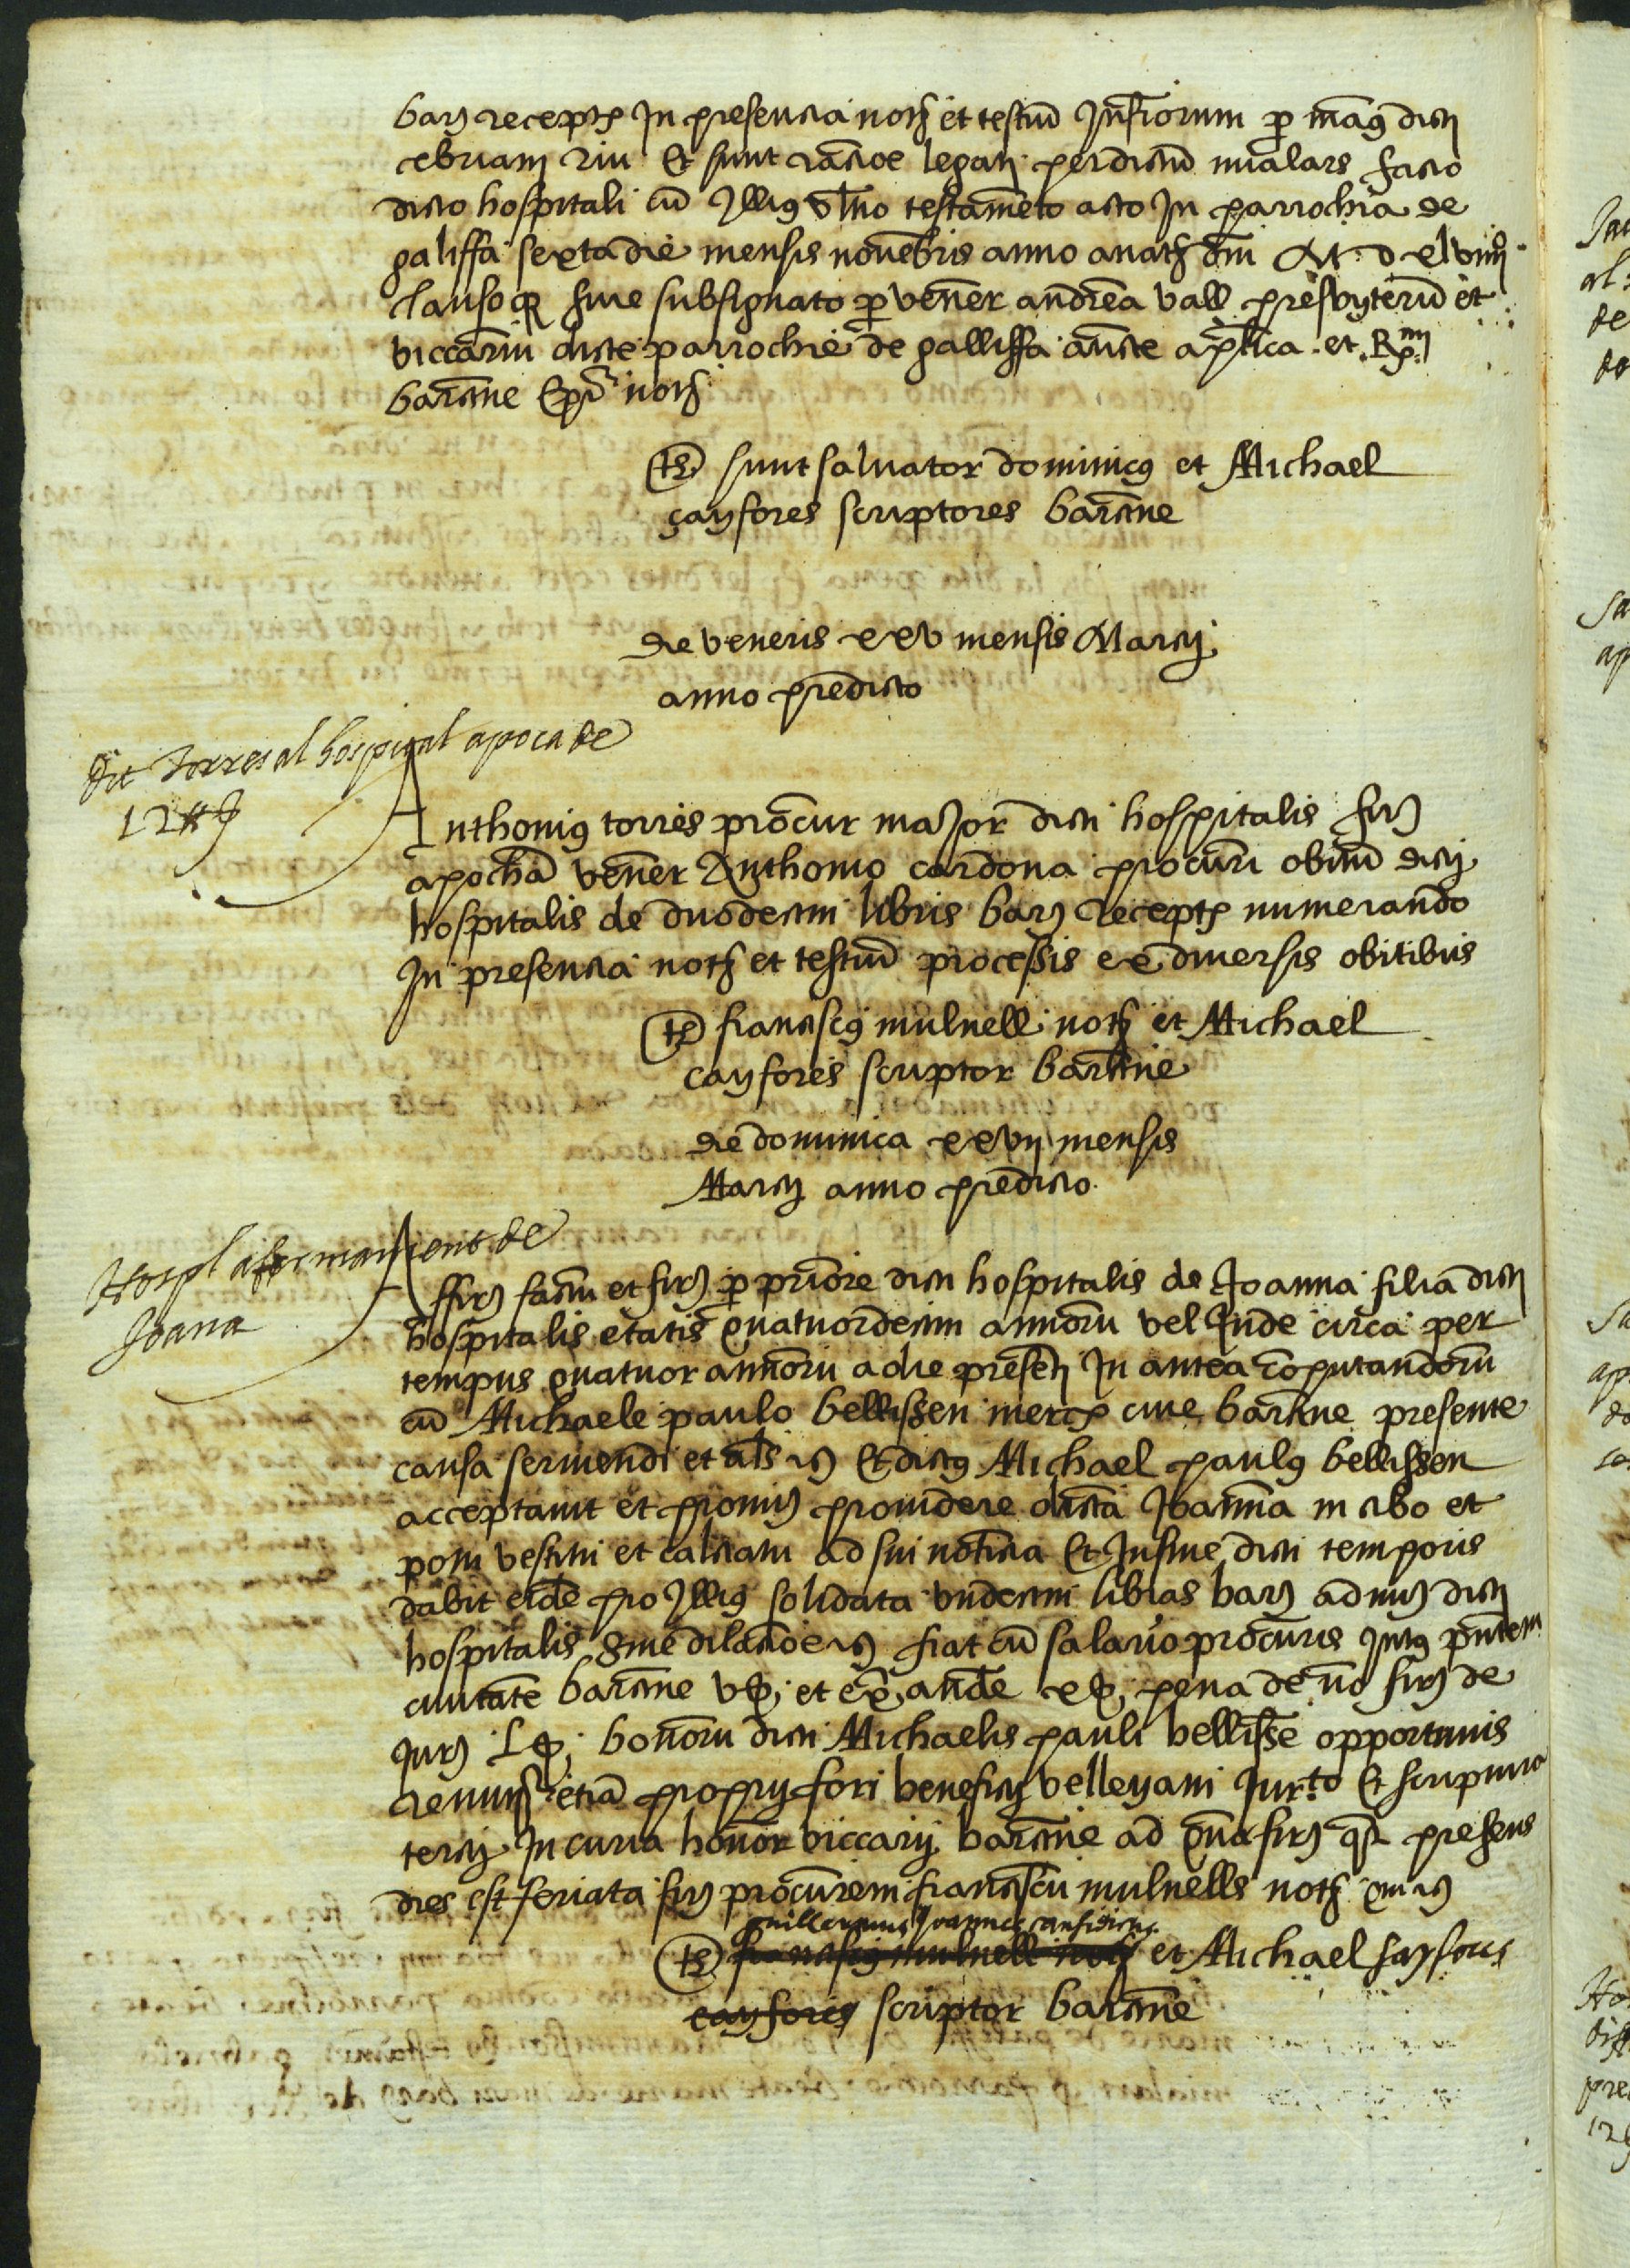 barꝫ receptꝭ In presencia notꝭ et testiū Infrıorum ꝑ magꝰ dicti
cibriam riu Et sunt racioē legati per dictū mialars facto
dicto hospitali cū Illiꝰ vltīo testamēto acto In parrochia de
galiffa sexta die mensis novēbris anno a natꝭ dñi M D xlviiijº
clauso qꝫ sive subsignato ꝑ vener andrea vall presbyterū et
viccariū dicte parrochie de galliffa aucte aplica et Rmi
barcine Epi notꝭ
ts sunt salvator dominicꝰ et Michael
çayfores scriptores barcine
die veneris xxv mensis Marcij
anno predicto
dit torres al hospital apoca de
12 ₶
Anthoniꝰ torres procur major dicti hospitalis firꝫ
apocha vener Anthonio cardona procuri obituū dicti
hospitalis de duodecim libris barꝫ receptꝭ numerando
In presencia notꝭ et testiū processis ex diversis obitibus
ts franciscꝰ mulnell notꝭ et Michael
cayfores scriptor barcine
die dominica xxvij mensis
Marcij anno predicto
Hospl afermament de
Joana
Affirꝫ factū et firꝫ ꝑ priore dicti hospitalis de Joanna filia dicti
hospitalis etatis quatuordecim annorū vel Inde circa per
tempus quatuor annorū a die presenti In antea coputandorū
cū Michaele paulo bellissen mercꝭ cive barcine presente
causa serviendi et als ꝛꝫ Et dictꝰ Michael paulꝰ bellissen
acceptavit et promiꝫ providere dictā Joannā in cibo et
potu vestitu et calciatu ad sui noticia Et In fine dicti temporis
dabit eidē pro Illiꝰ solidata undecim libras barꝫ ad miꝫ dicti
hospitalis Sine dilacioē ꝛꝫ fiat cū salario procuris Intꝰ pñtem
civitate barcine vꝭ et ex ande xꝭ pena de no firꝫ de
Jurꝫ Lꝭ bonorū dicti Michaelis pauli bellisse opportunis
renunꝭ etiā proprij fori beneficij velleyani Jurto Et scriptura
tercij In curia honor viccarij barcine ad qua firꝫ qꝫ presens
dies est feriata firꝫ procurem franciscū mulnells notꝭ
guillermus Joannes causidicus
ts franciscꝰ mulnell notꝭ et Michael sayfores
cayfores scriptor barcine